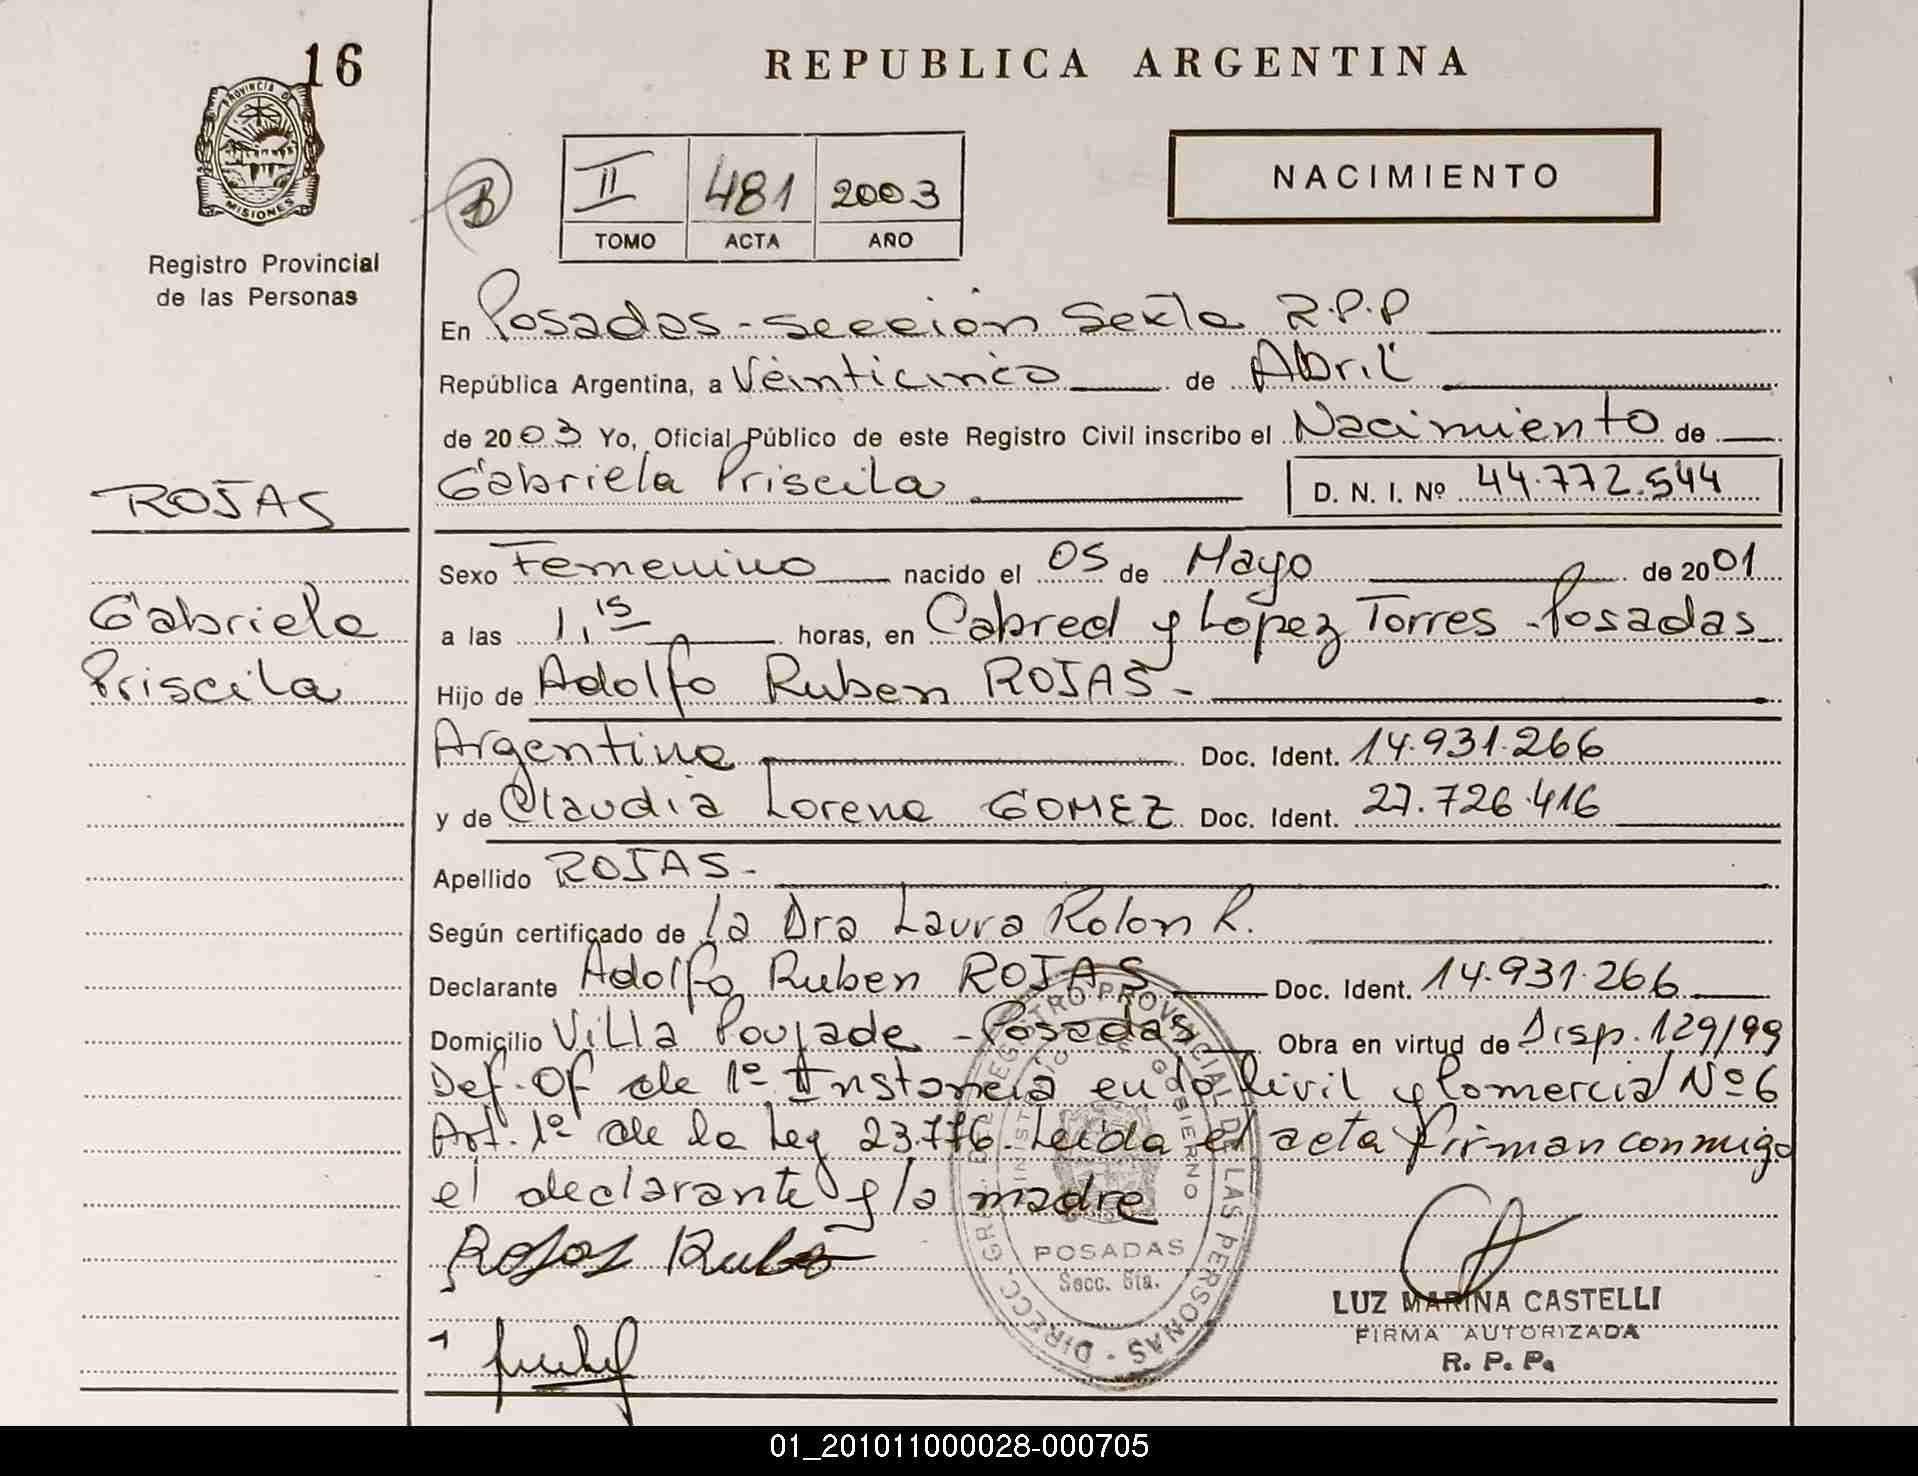 16
REPUBLICA ARGENTINA
PROVINCIA DE
MISIONES
Registro Provincial
de las Personas
II 481 2003
TOMO ACTA AÑO
NACIMIENTO
En Posadas - sección Sexta R.P.P
República Argentina, a Veinticinco de Abril
de 2003 Yo, Oficial Público de este Registro Civil inscribo el Nacimiento de
Gabriela Priscila D. N. I. Nº 44.772.544
ROJAS
Gabriela
Priscila
Sexo Femenino nacido el 05 de Mayo de 2001
a las 1,15 horas, en Cabred y Lopez Torres - Posadas
Hijo de Adolfo Ruben ROJAS -
Argentina Doc. Ident. 14.931.266
y de Claudia Lorena GOMEZ Doc. Ident. 27.726.416
Apellido ROJAS -
Según certificado de la Dra Laura Rolon R.
Declarante Adolfo Ruben ROJAS Doc. Ident. 14.931.266
Domicilio Villa Poujade - Posadas Obra en virtud de Disp. 129/99
Def. Of de 1º Instancia en lo Civil y Comercial Nº 6
Art. 1º de la Ley 23.776. Leida el acta firman conmigo
el declarante y la madre
Rojas Ruben
DIRECC. GRAL. DEL REGISTRO PROVINCIAL DE LAS PERSONAS
MINISTERIO DE GOBIERNO
POSADAS
Secc. 6ta.
LUZ MARINA CASTELLI
FIRMA AUTORIZADA
R. P. P.
01_201011000028-000705